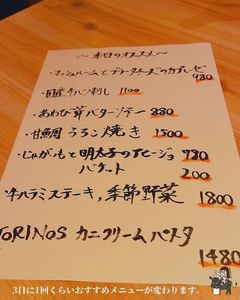 ～本日のオススメ～
・マッシュルームとブラータチーズのカプレーゼ
980
・国産牛ハツ刺し 1100
・あわび茸バターソテー 880
・甘鯛うろこ焼き 1500
・じゃがいもと明太子のアヒージョ 980
バケット 200
・牛ハラミステーキ,季節野菜 1800
TORINOS カニクリームパスタ
1480
3日に1回くらいおすすめメニューが変わります。